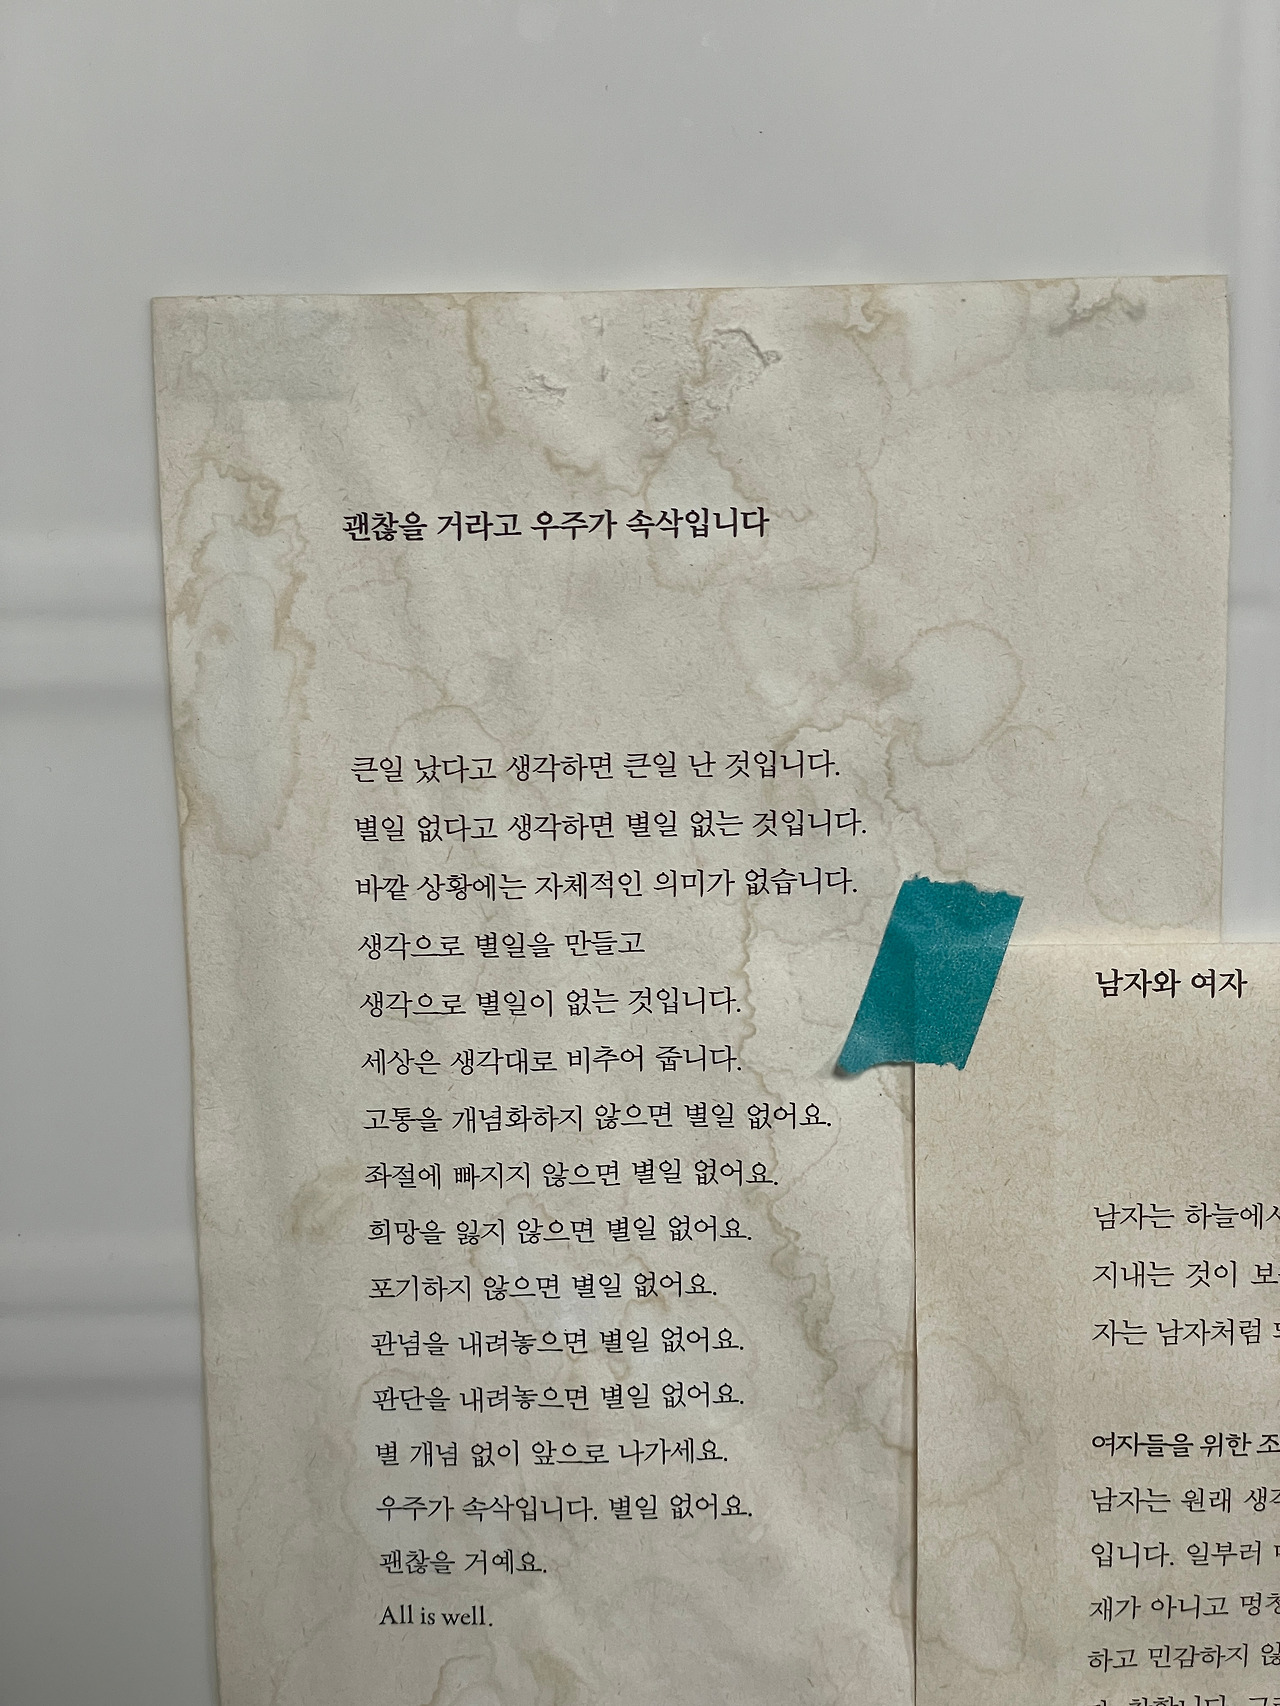 괜찮을 거라고 우주가 속삭입니다
큰일 났다고 생각하면 큰일 난 것입니다.
별일 없다고 생각하면 별일 없는 것입니다.
바깥 상황에는 자체적인 의미가 없습니다.
생각으로 별일을 만들고
생각으로 별일이 없는 것입니다.
세상은 생각대로 비추어 줍니다.
고통을 개념화하지 않으면 별일 없어요.
좌절에 빠지지 않으면 별일 없어요.
희망을 잃지 않으면 별일 없어요.
포기하지 않으면 별일 없어요.
관념을 내려놓으면 별일 없어요.
판단을 내려놓으면 별일 없어요.
별 개념 없이 앞으로 나가세요.
우주가 속삭입니다. 별일 없어요.
괜찮을 거예요.
All is well.
남자와 여자
남자는
지내는 것이
자는 남자처럼
여자들을 위한
남자는 원래
입니다. 일부러
재가 아니고
하고 민감하지